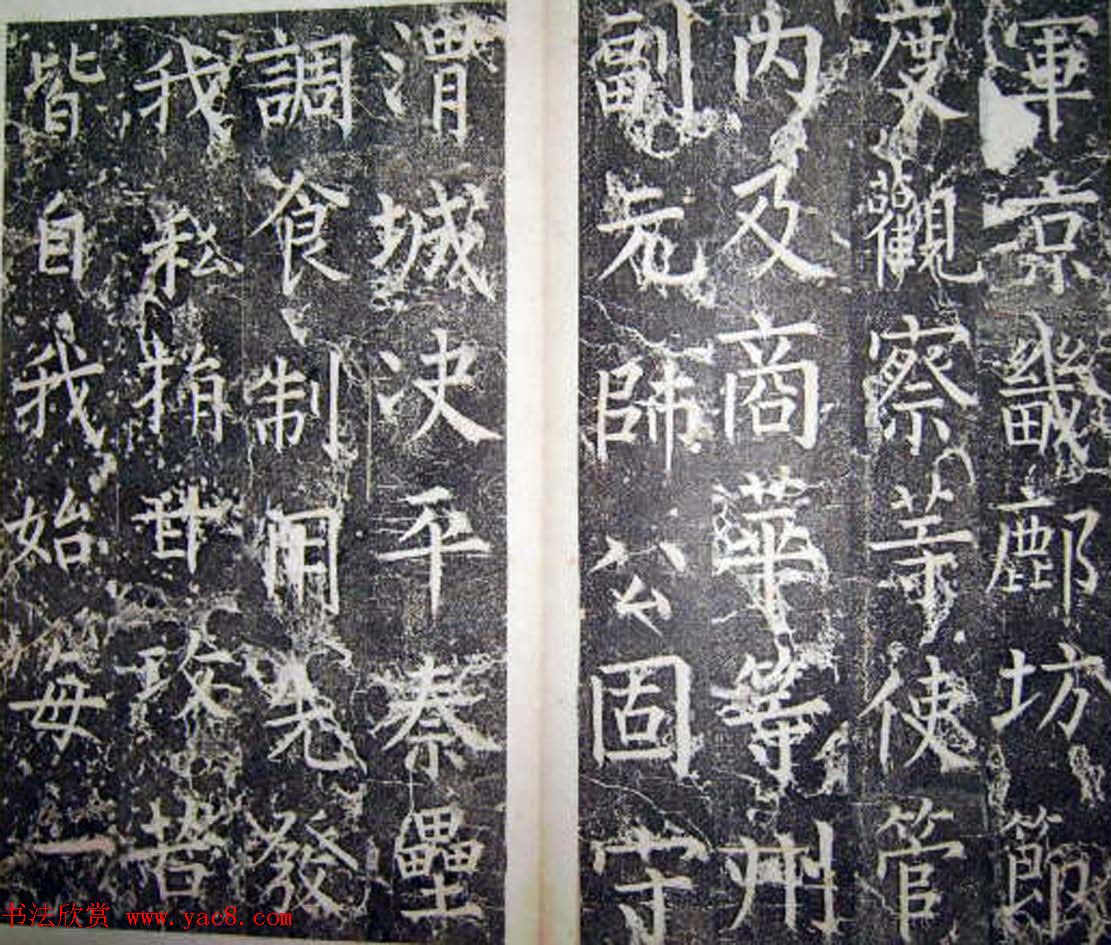 軍京畿鄜坊節
度觀察等使管
内及商華等州
副元帥公固守
渭城決平秦壘
調食制用先發
我私捐甘攻苦
皆自我始每一
书法欣赏 www.yac8.com